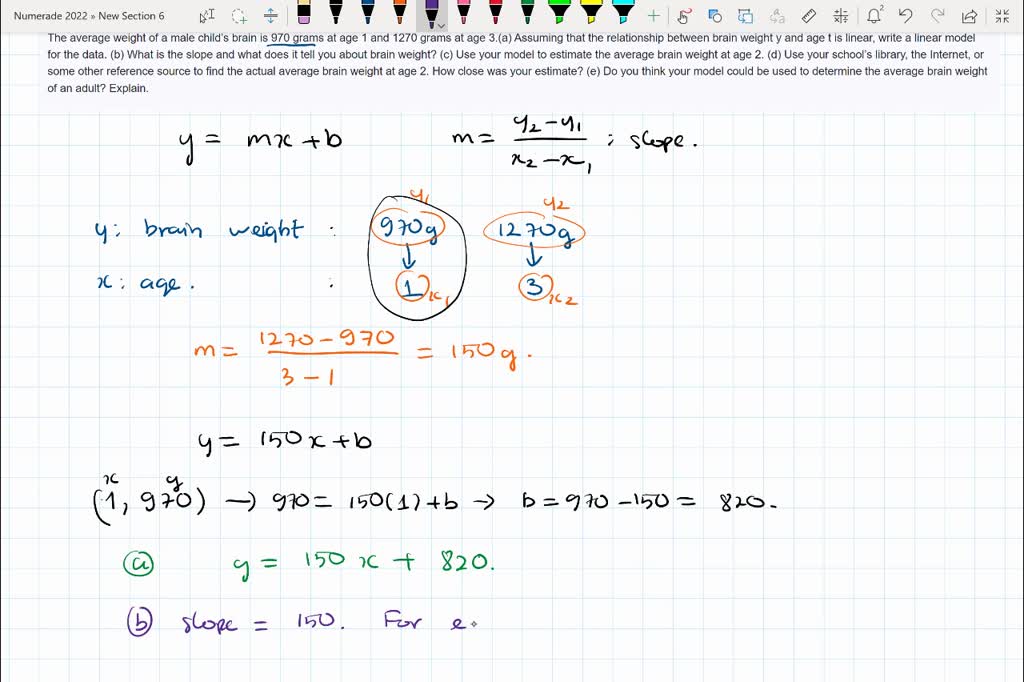 Numerade 2022 » New Section 6
The average weight of a male child's brain is 970 grams at age 1 and 1270 grams at age 3.(a) Assuming that the relationship between brain weight y and age t is linear, write a linear model
for the data. (b) What is the slope and what does it tell you about brain weight? (c) Use your model to estimate the average brain weight at age 2. (d) Use your school's library, the Internet, or
some other reference source to find the actual average brain weight at age 2. How close was your estimate? (e) Do you think your model could be used to determine the average brain weight
of an adult? Explain.
y = mx + b m = y₂-y₁ / x₂-x₁ ; slope.
y₁ y₂
y: brain weight : 970g 1270g
↓ ↓
x: age. : 1 x₁ 3 x₂
m = 1270-970 / 3-1 = 150g.
y = 150x + b
x y
(1, 970) → 970 = 150(1)+b → b = 970-150 = 820.
ⓐ y = 150 x + 820.
ⓑ slope = 150. For e